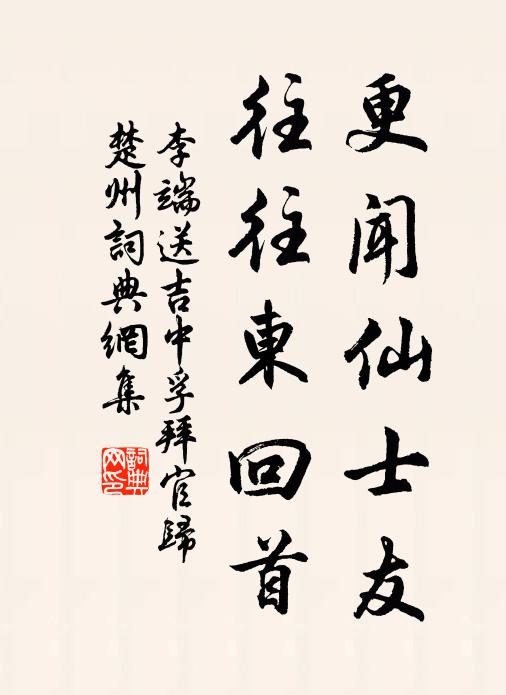 更聞仙士友
往往東回首
李端送吉中孚拜官歸
楚州詞典網集
詞典
网印